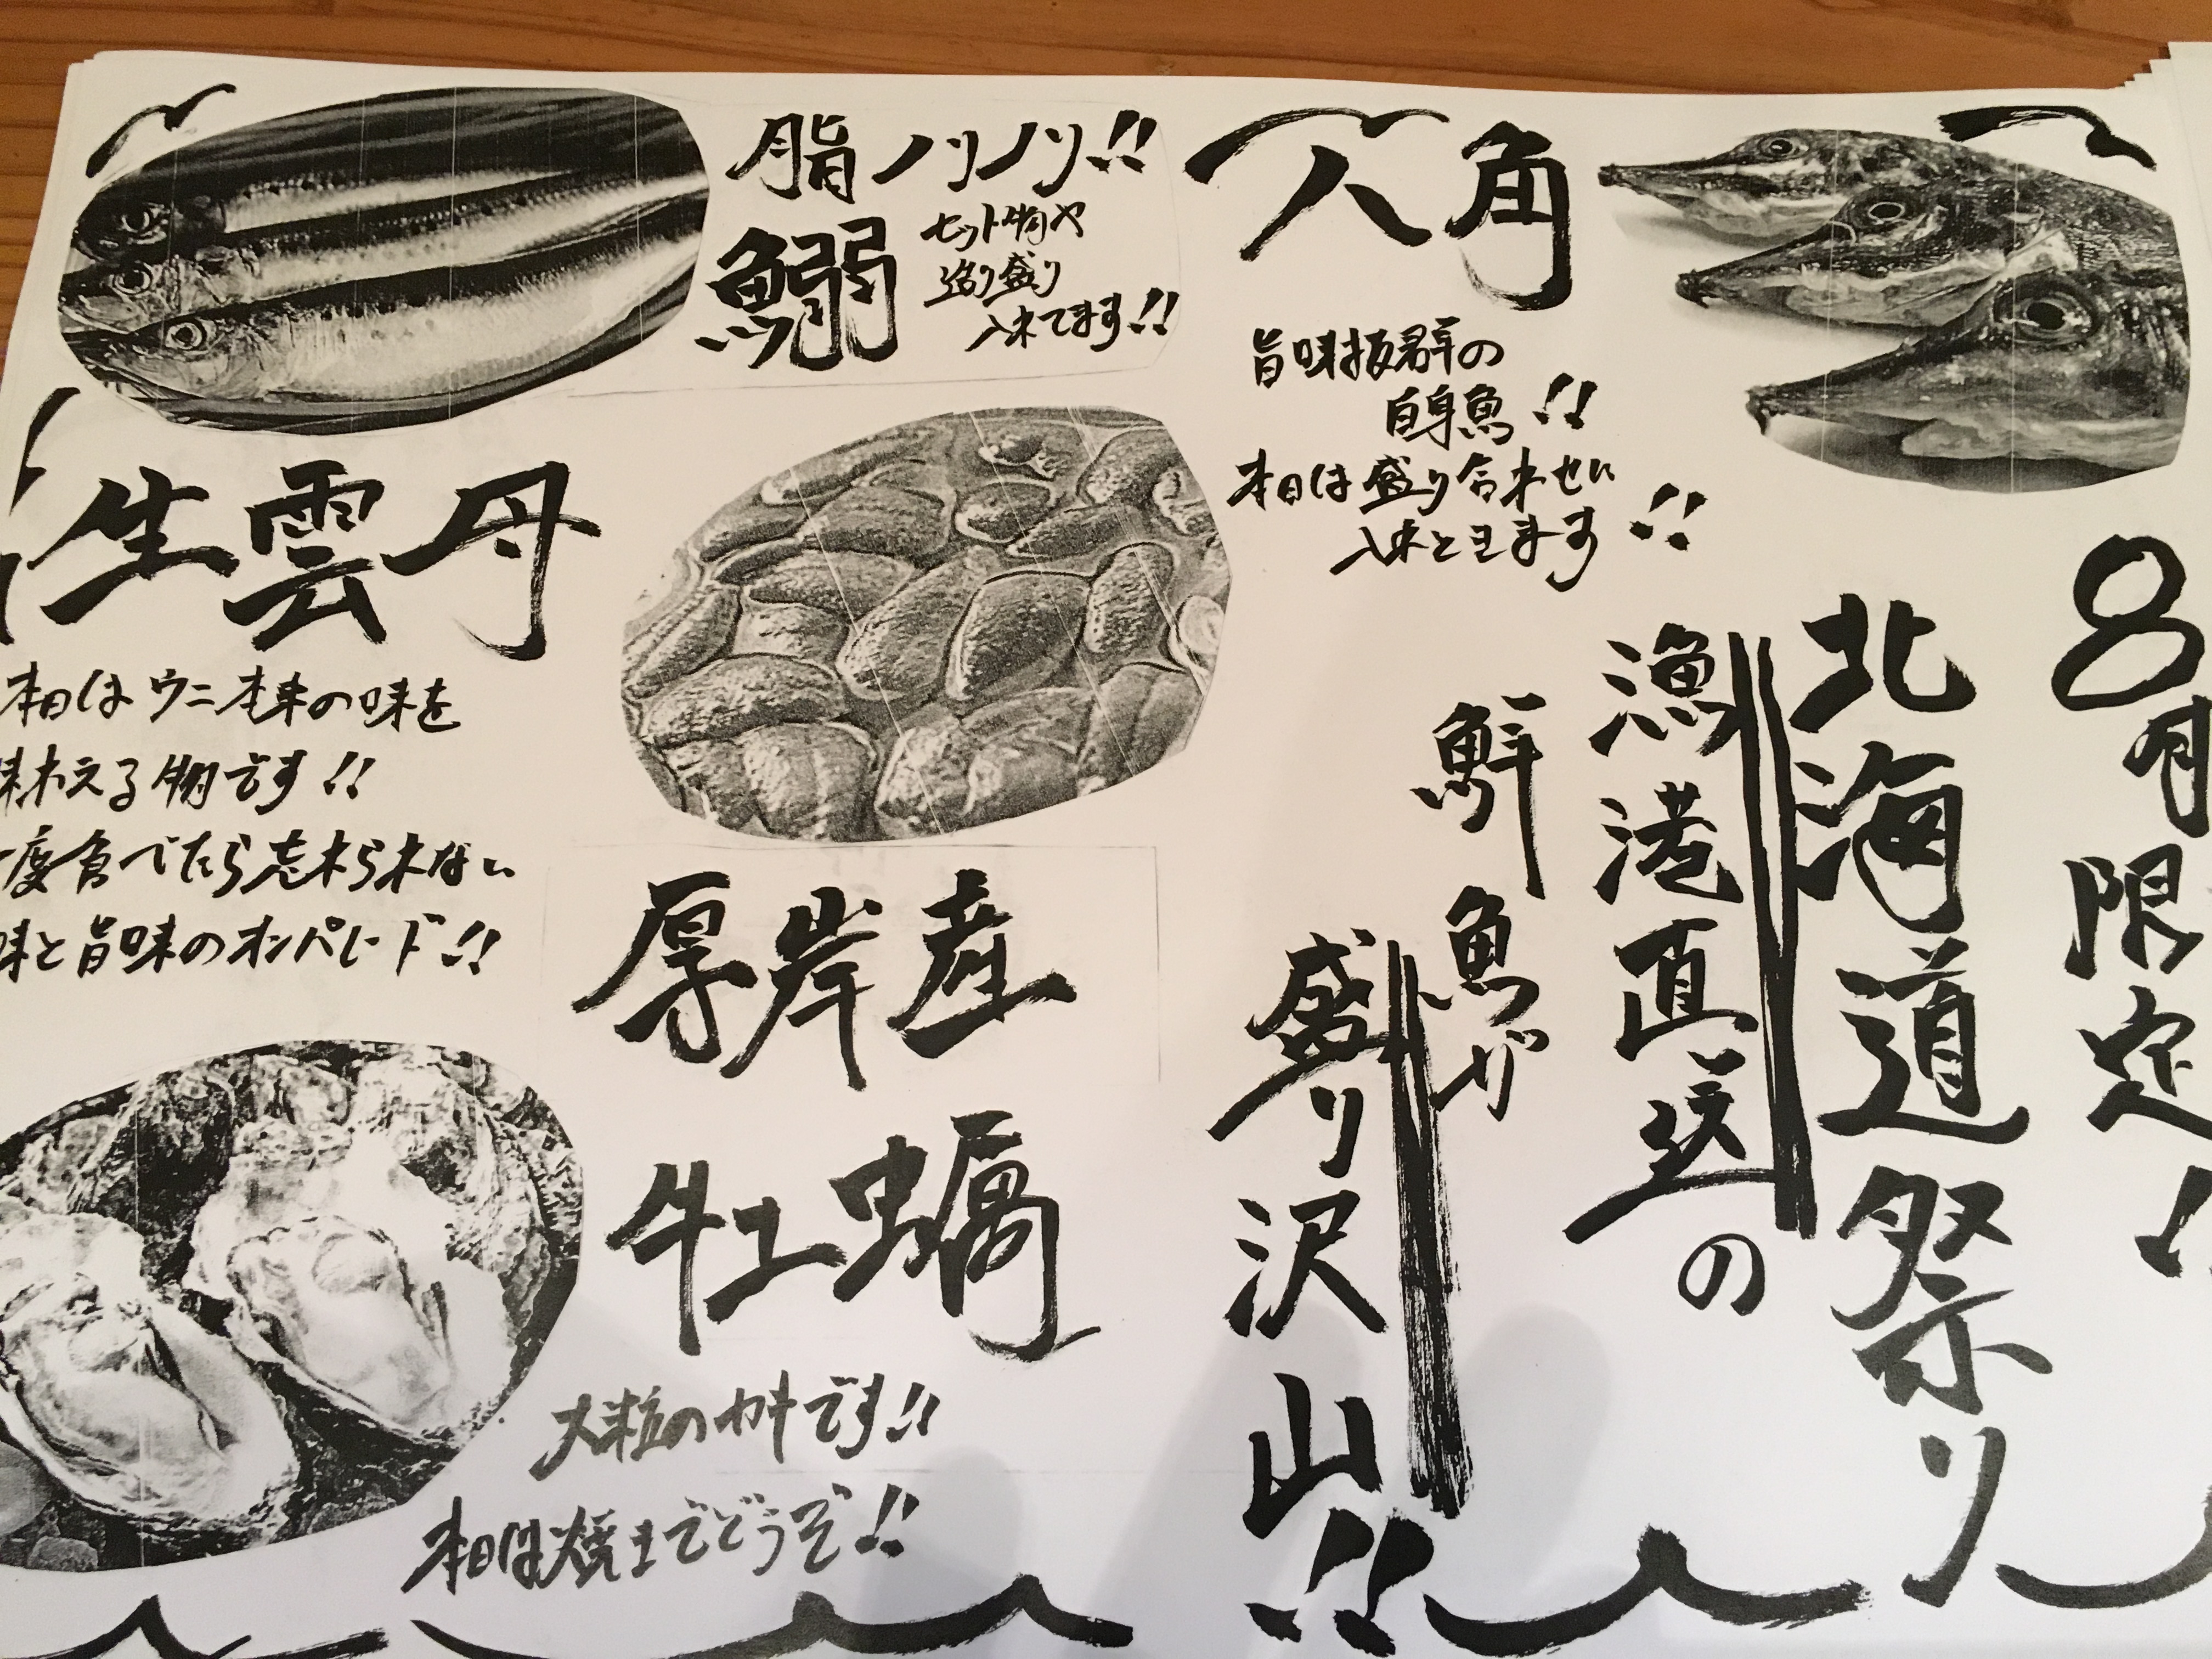 8月限定!
北海道祭り
漁港直送の
鮮魚が
盛り沢山!!
八角
旨味抜群の
白身魚!!
本日は盛り合わせに
入ってます!!
脂ノリノリ!!
鰯
セット物や
造り盛り
入れてます!!
生雲丹
本日はウニ本来の味を
味わえる物です!!
一度食べたら忘れられない
味と旨味のオンパレード!!
厚岸産
牡蠣
大粒のカキです!!
本日は焼きでどうぞ!!